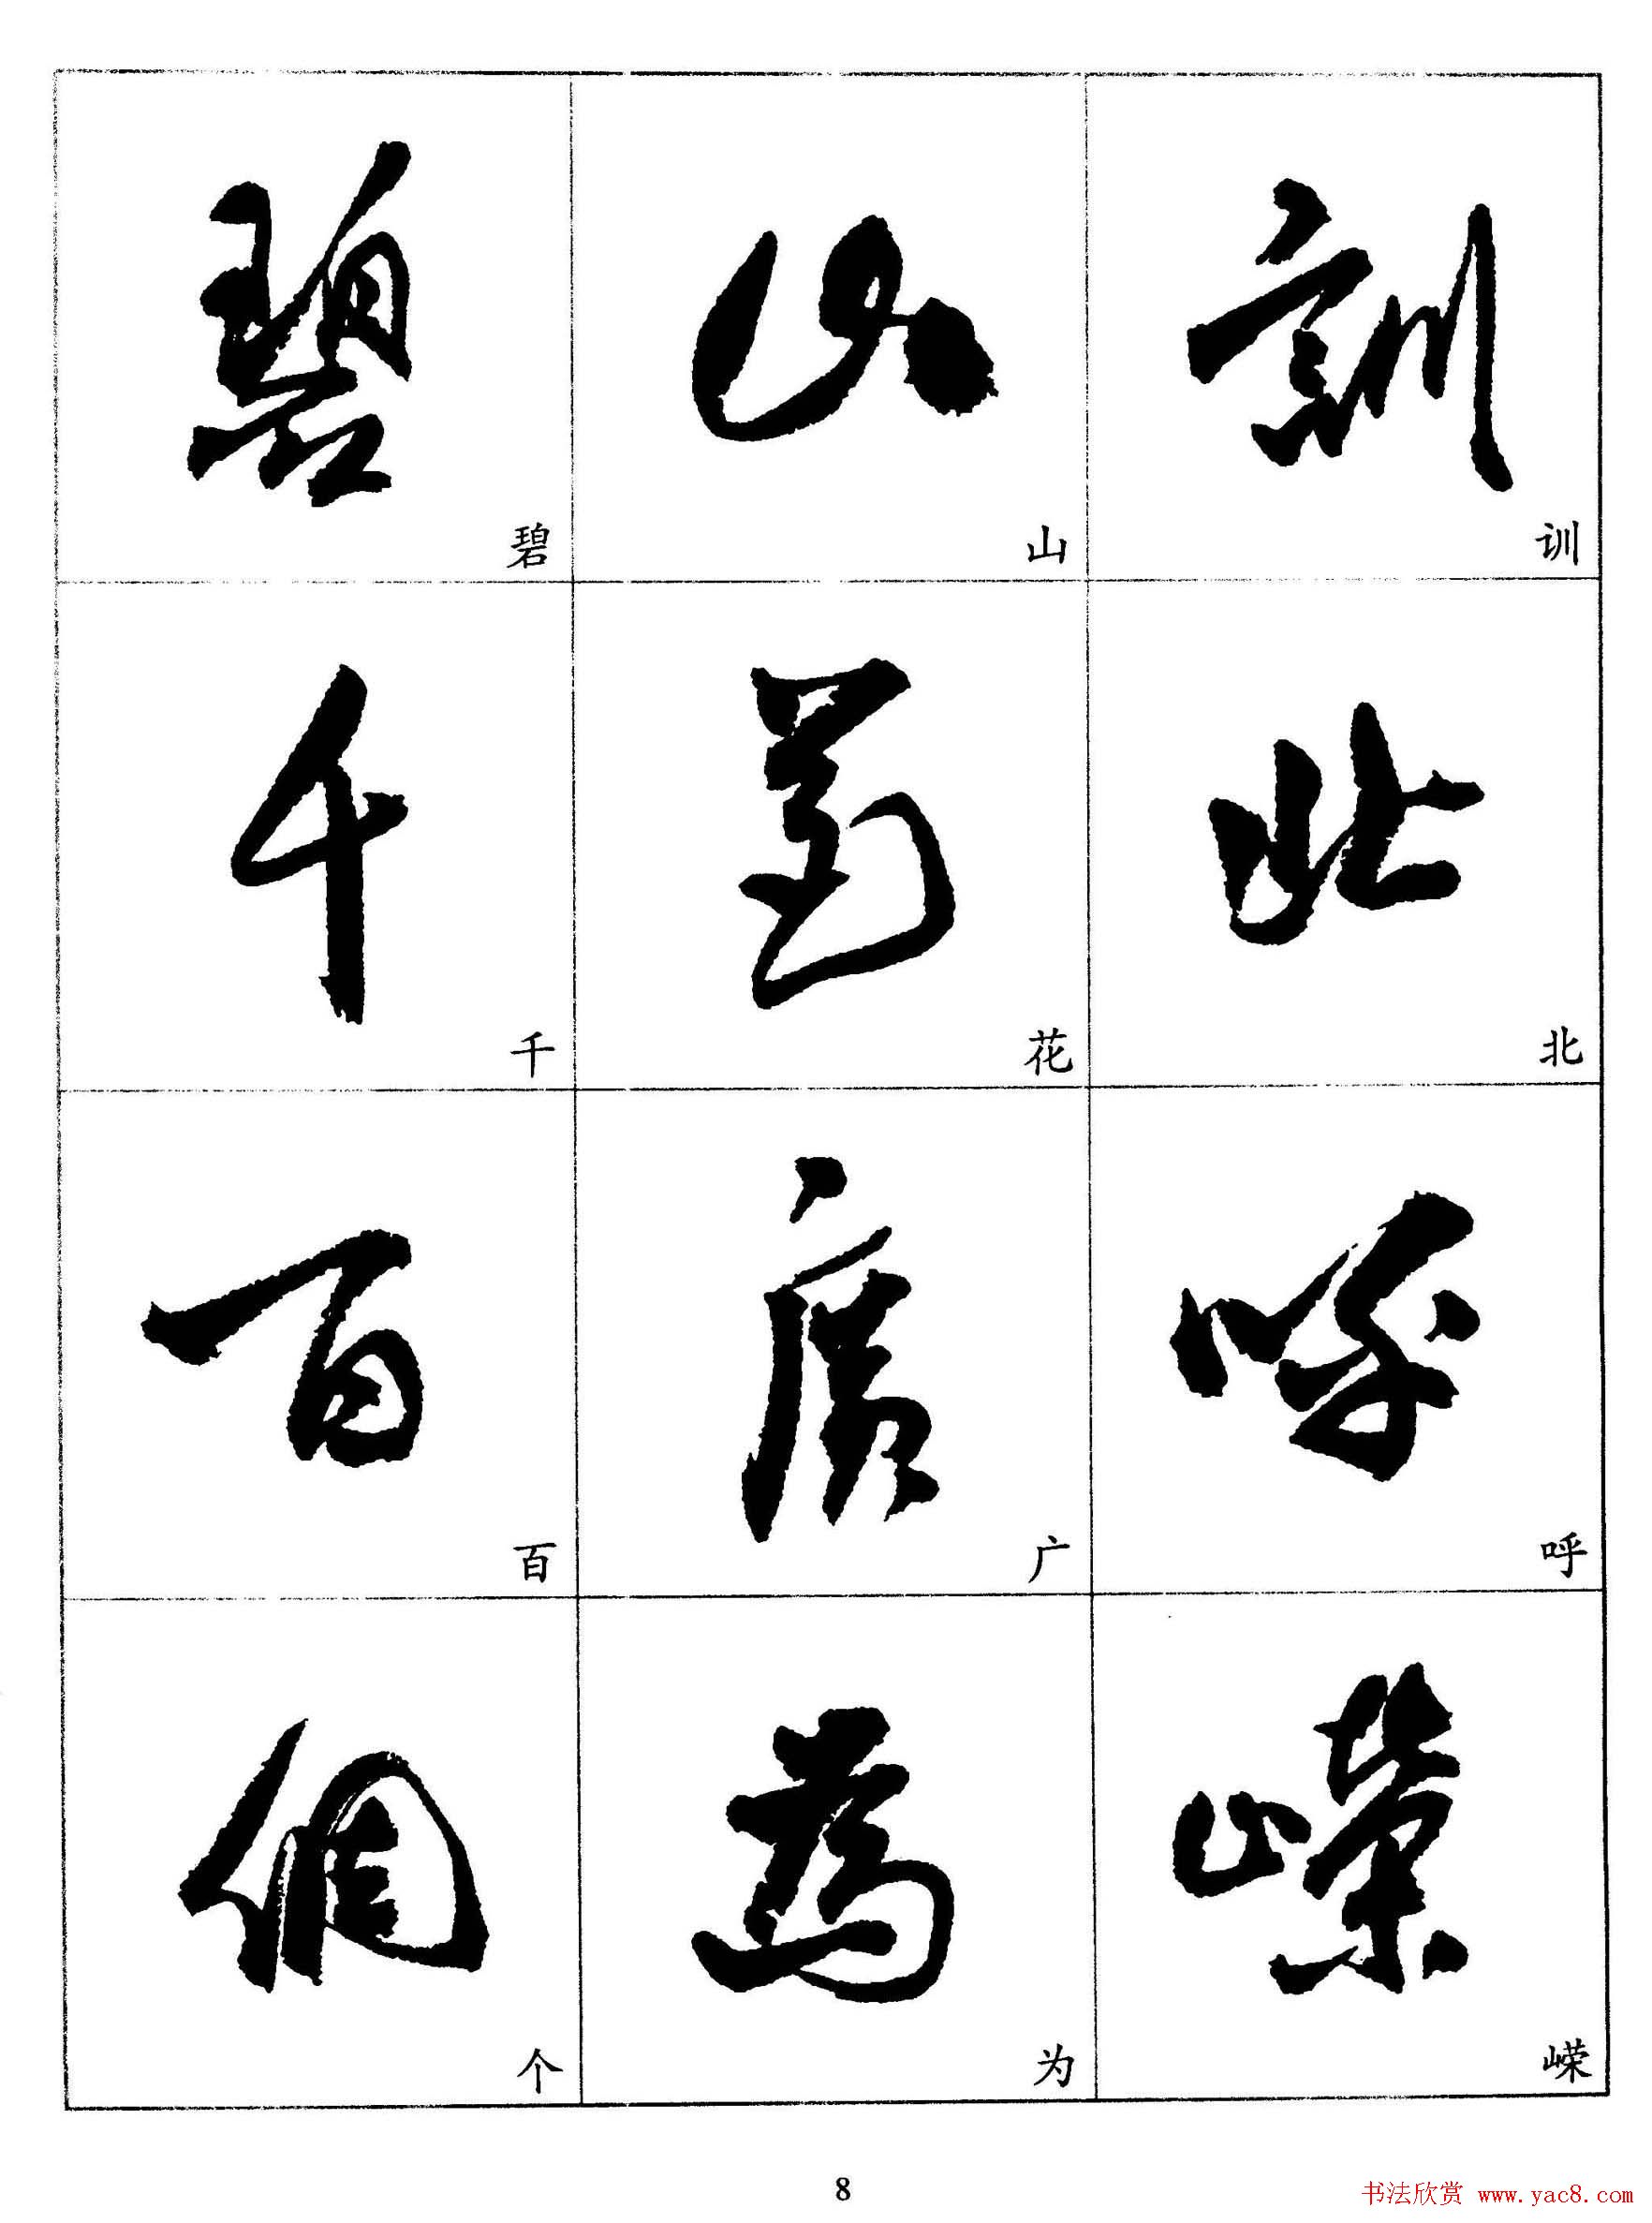 碧 山 訓
碧 山 训
千 花 北
千 花 北
百 廣 呼
百 广 呼
個 為 嶸
个 为 嵘
8
书法欣赏 www.yac8.com